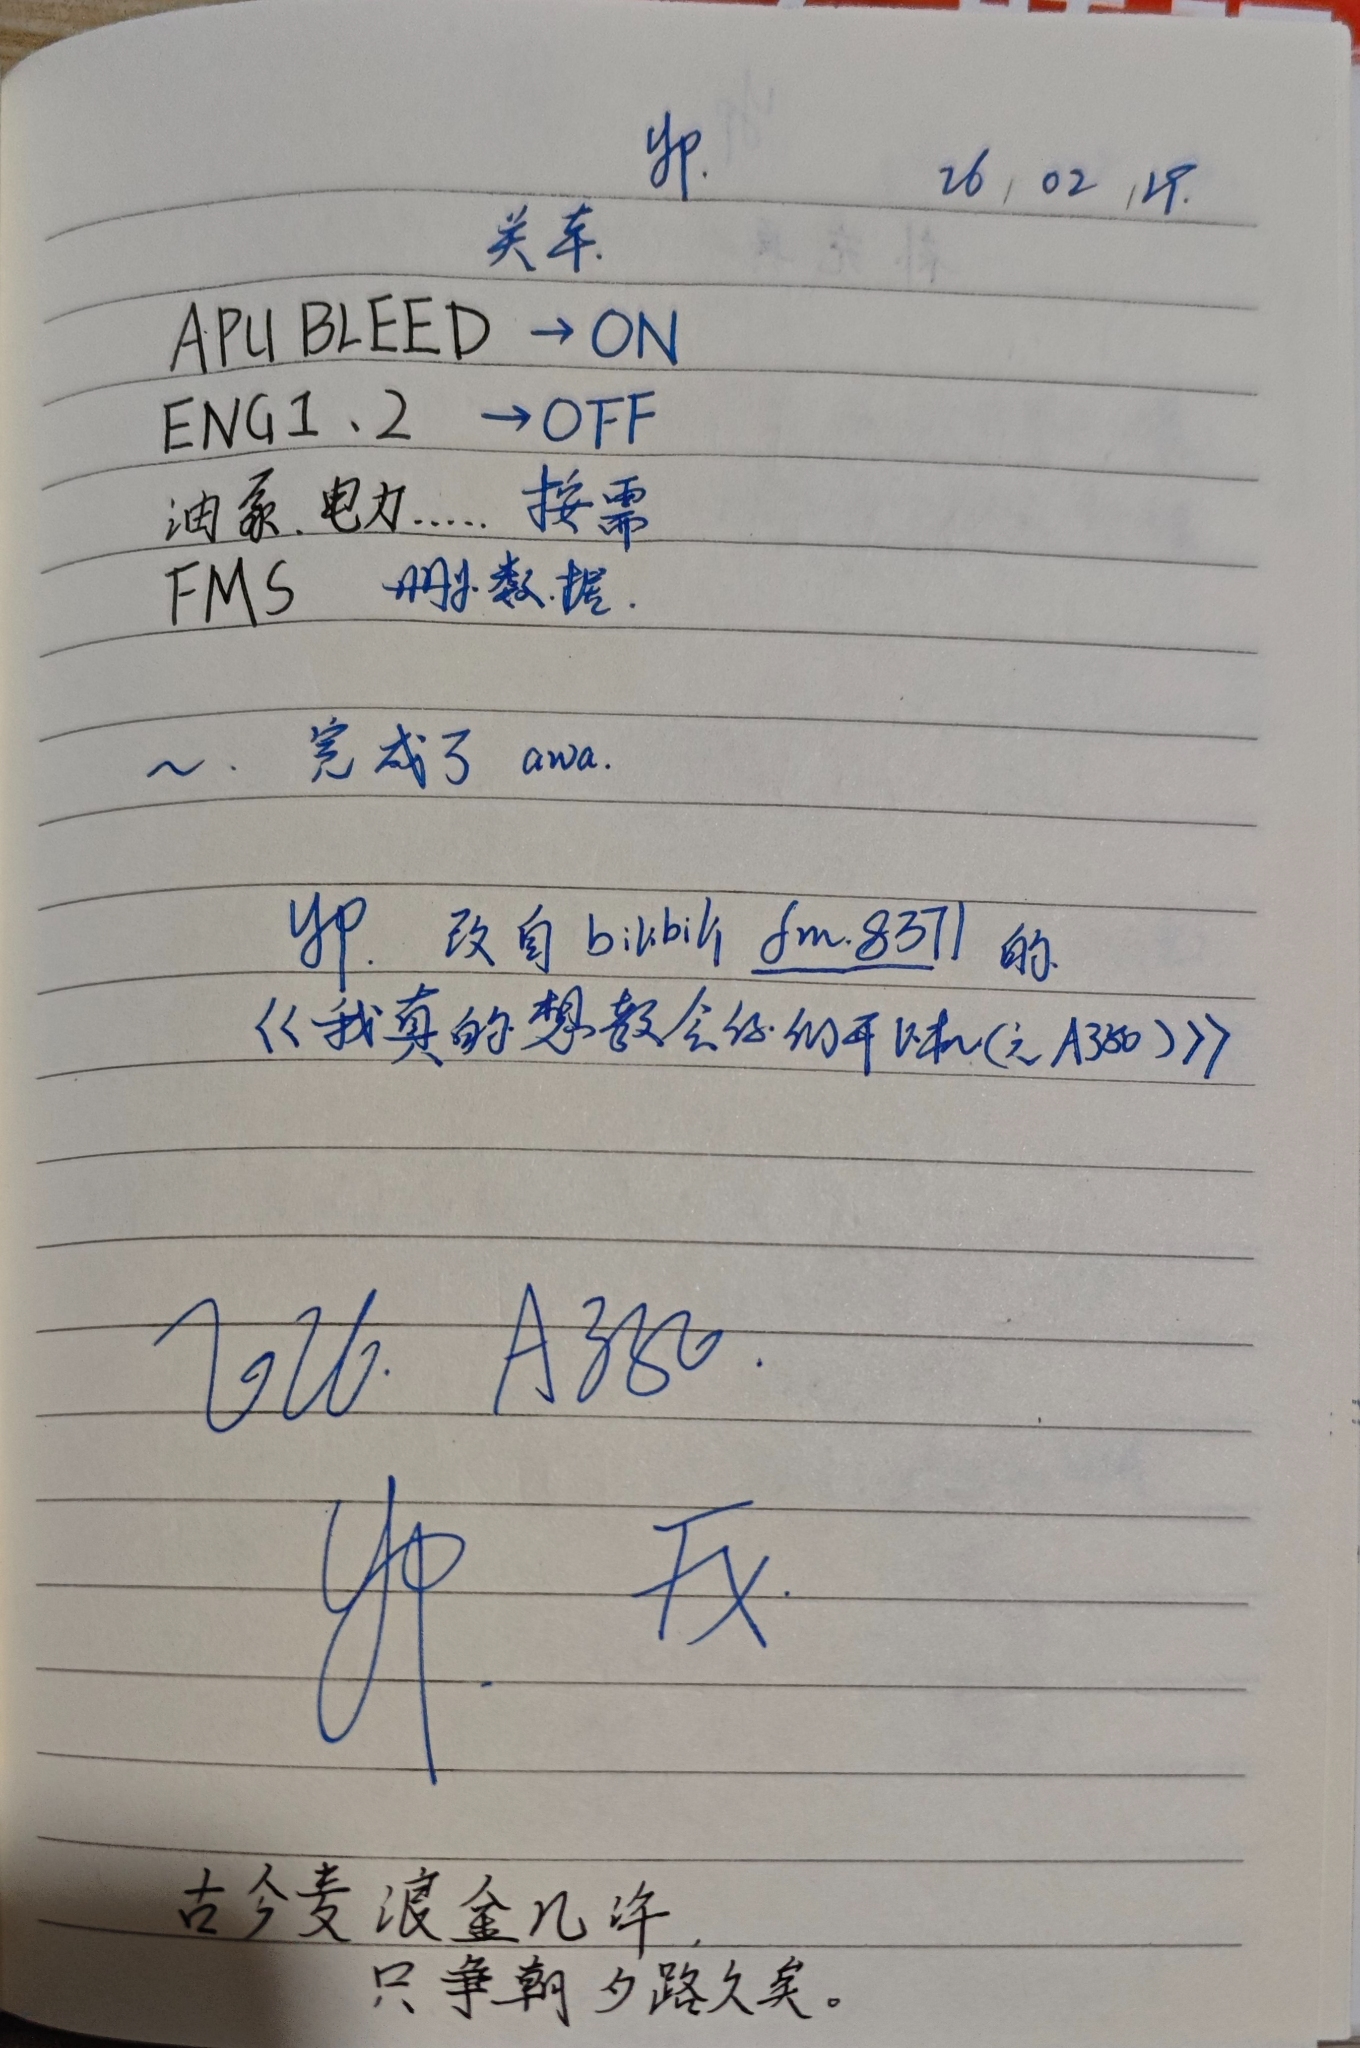 yp. 26, 02, 19.
关车.
APU BLEED → ON
ENG1、2 → OFF
油泵、电力..... 按需
FMS 删数据.
~. 完成了 awa.
yp. 改自 bilibili fm.8371 的
《我真的想教会你们开飞机(之A380)》
A380.
yp. FX.
古今麦浪金几许,
只争朝夕路久矣。